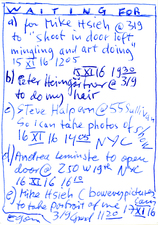 WAITING FOR
a) for Mike Hsieh @ 319
to "shoot in door left
mingling and art doing"
15 XI 16 1205
b) Peter @ 319
15 XI 16 1930
to do my heir
c) Steve Halpern @ 55 Sullivan
So i can take photos of
16 XI 16 1405 NYC
d) Andrea to open
door @ 250 W 19th NYC
16 XI 16 1610
e) Mike Hsieh (bowerypictures
to take Portrait of me
319 Grand 1120 16